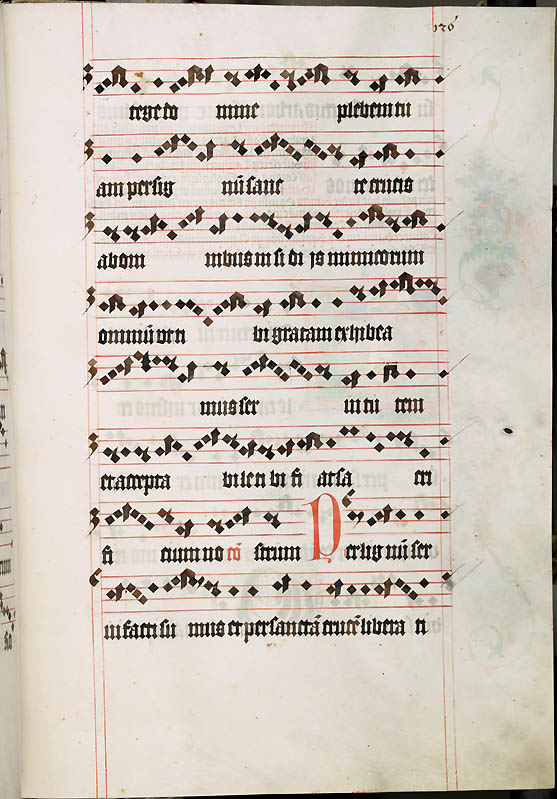 126
tege do mine plebem tu
am per sig nū sanc te crucis
ab om nibus in si di js inimicorum
omniū vt ti bi gratam exhibea
mus ser ui tu tem
et accepta bile ti bi fi at sa cri
fi cium no cō strum Per lig nū ser
ui facti su mus et per sanctā crucē libera ti